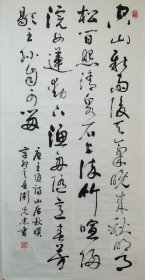 空山新雨後天氣晚來秋明月
松間照清泉石上流竹喧歸
浣女蓮動下漁舟隨意春芳
歇王孫自可留
唐王維詩山居秋暝